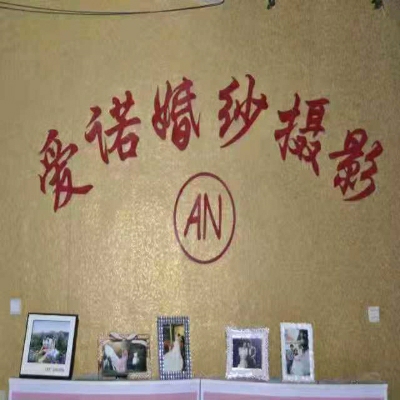 爱诺婚纱摄影
AN